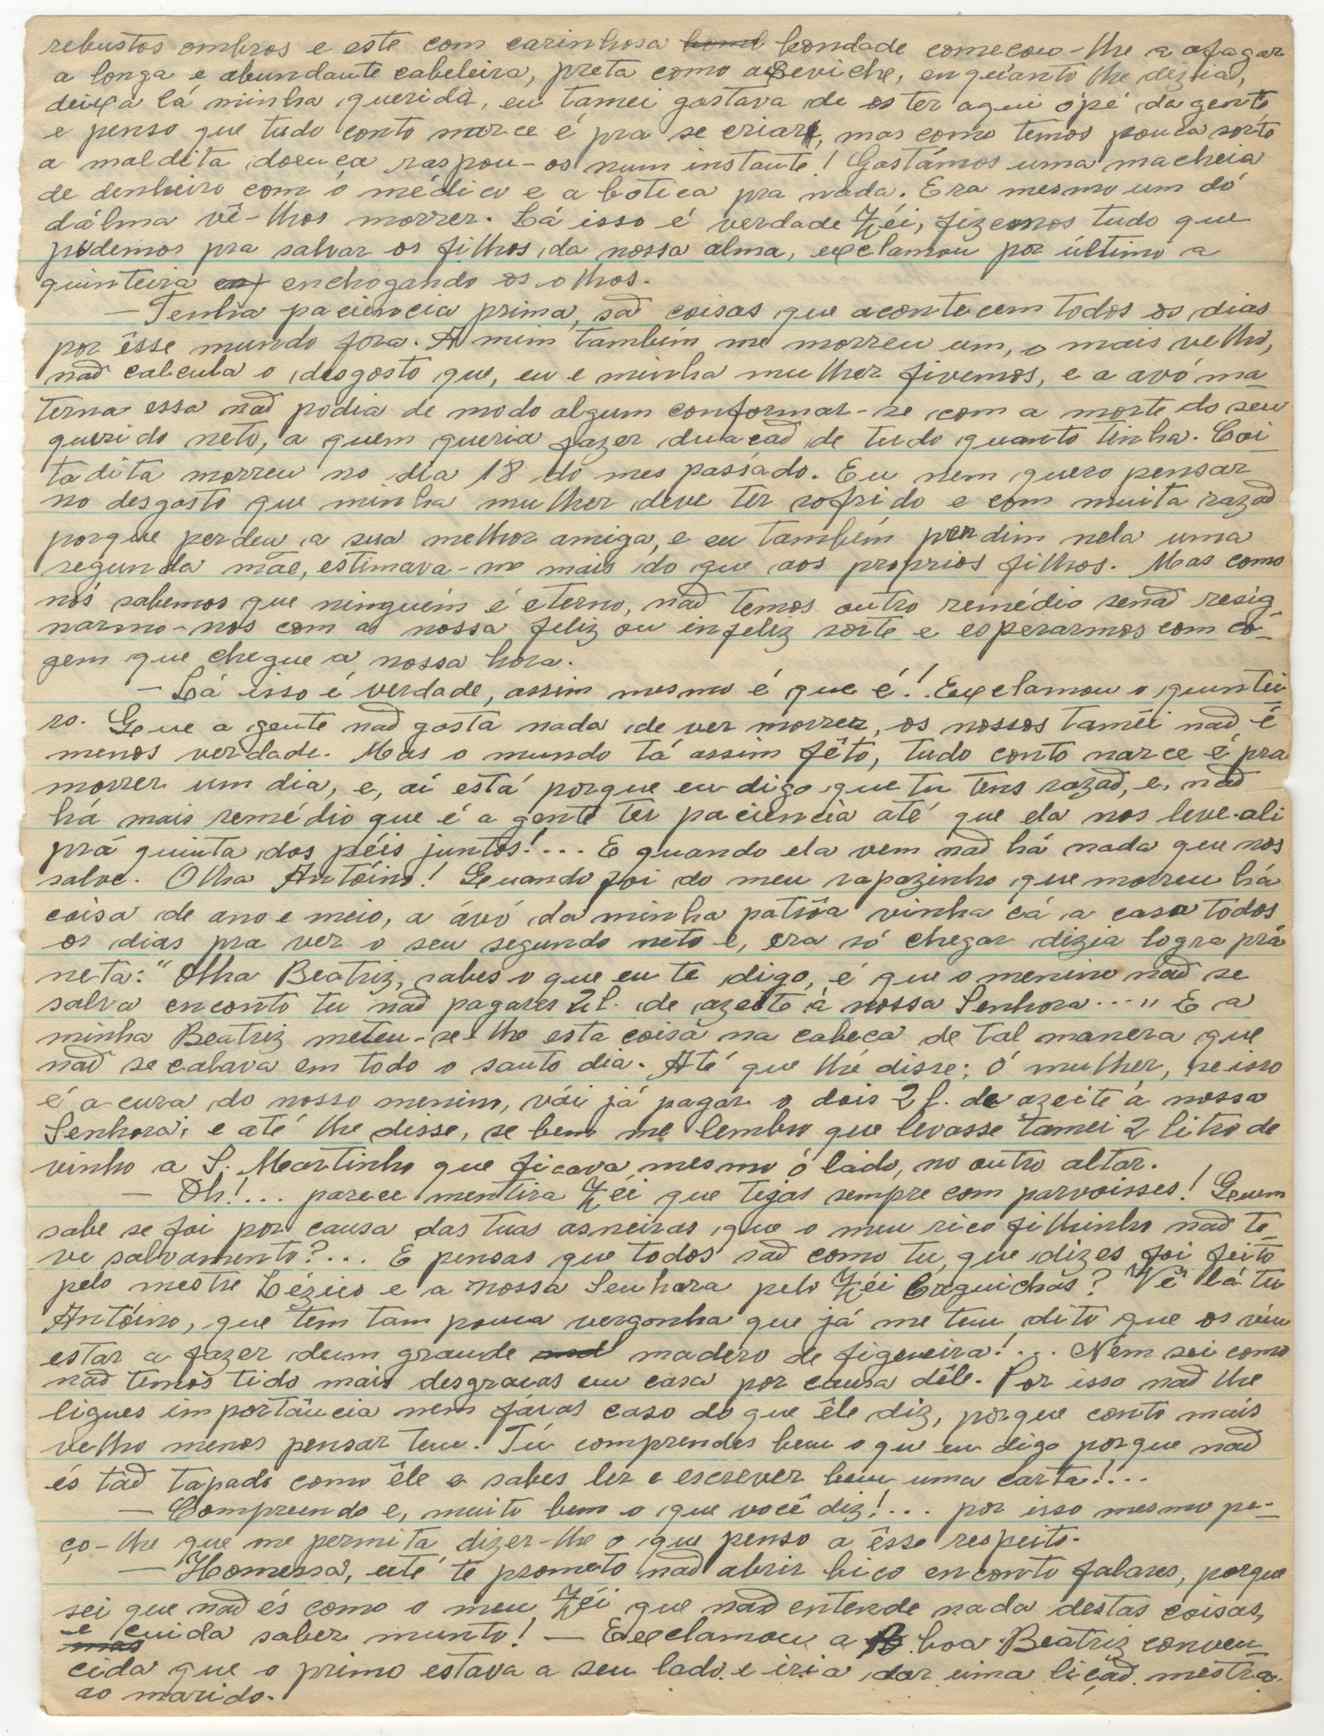 robustos ombros e este com carinhosa bondade começou-lhe a afagar
a longa e abundante cabeleira, preta como azeviche, enquanto lhe dizia,
deixa lá minha querida, eu tamei gostava de os ter aqui ó pé da gente
e penso que tudo conto narce é pra se criar, mas como temos pouca sorte
a maldita doença raspou-os num instante! Gastámos uma macheia
de denheiro com ó médico e a botica pra nada. Era mesmo um dó
d'álma vê-lhos morrer. Lá isso é verdade Zéi, fizemos tudo que
pudemos pra salvar os filhos da nossa alma, exclamou por último a
quinteira enchogando os olhos.
— Tenha paciencia prima, são coisas que acontecem todos os dias
por êsse mundo fora. A mim também me morreu um, o mais velho,
não calcula o desgosto que, eu e minha mulher tivemos, e a avó ma
terna essa não podia de modo algum conformar-se com a morte do seu
querido neto, a quem queria fazer duação de tudo quanto tinha. Coi-
tadita morreu no dia 18 do mes passado. Eu nem quero pensar
no desgosto que minha mulher deve ter sofrido e com muita razão
porque perdeu a sua melhor amiga, e eu também perdim nela uma
segunda mãe, estimava-me mais do que aos proprios filhos. Mas como
nós sabemos que ninguém é eterno, não temos outro remédio senão resig
narmo-nos com a nossa feliz ou infeliz sorte e esperarmos com có-
gem que chegue a nossa hora.
— Lá isso é verdade, assim mesmo é que é! Exclamou o quintei
ro. Que a gente não gosta nada de ver morrer, os nossos taméi não é
menos verdade. Mas o mundo tá assim fêto, tudo conto narce é pra
morrer um dia, e, aí está porque eu digo que tu tens razão, e, não
há mais remédio que é a gente ter paciência até que ela nos leve ali
prá quinta dos péis juntos!... E quando ela vem não há nada que nos
salve. Olha Antóino! Quando foi do meu rapazinho que morreu há
coisa de ano e meio, a ávó da minha patrôa vinha cá a casa todos
os dias pra ver o seu segundo neto e, era só chegar dizia logra prá
neta: "Olha Beatriz, sabes o que eu te digo, é que o menino não se
salva enconto tu não pagares 2 l. de azeite á nossa Senhora..." E a
minha Beatriz meteu-se-lhe esta coisa na cabeça de tal manera que
não se calava em todo o santo dia. Até que lhe disse: ó mulher, se isso
é a cura do nosso menino, vái já pagar o dois 2 l. de azeite á nossa
Senhora; e até lhe disse, se bem me lembro que levasse tamei 2 litro de
vinho a S. Martinho que ficava mesmo ó lado, no outro altar.
— Oh!... parece mentira Zéi que tejas sempre com parvoisses! Quem
sabe se foi por causa das tuas asneiras que o meu rico filhinho não te
ve salvamento?... E pensas que todos são como tu, que dizes foi feito
pelo mestre Lézico e a nossa Senhora pelo Zéi? Vê lá tu
Antóino, que tem tam pouca vergonha que já me tem dito que os viu
estar a fazer dum grande madero de figueira!... Nem sei como
não temos tido mais desgraças em casa por causa dêle. Por isso não lhe
ligues importância nem faças caso do que êle diz, porque conto mais
velho menos pensar tem. Tú comprendes bem o que eu digo porque não
és tão tapado como êle e sabes ler e escrever bem uma carta!...
— Compreendo e, muito bem o que você diz!... por isso mesmo pe-
ço-lhe que me permita dizer-lhe o que penso a êsse respeito.
— Homessa, eité te prometo não abrir bico enconto falares, porque
sei que não és como o meu Zéi que não entende nada destas coisas,
e cuida saber munto! — Exclamou a boa Beatriz conven
cida que o primo estava a seu lado e iria dar uma lição mestra
ao marido.